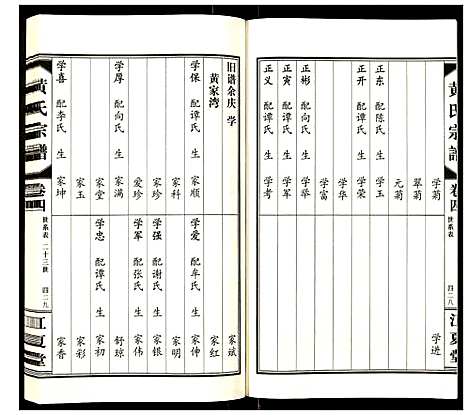 黄氏宗譜
卷四
世系表
四二八
江夏堂
学菊
翠菊
元菊
正东 配陈氏 生 学玉
正开 配谭氏 生 学荣
学华
正彬 配向氏 生 学富
正寅 配谭氏 生 学军
正义 配谭氏 生 学考
学进
旧谱余庆 学
黄家湾
学保 配谭氏 生 家顺
家科
家珍
爱珍
学厚 配向氏 生 家满
家堂
家玉
学喜 配李氏 生 家坤
家斌
家红
学爱 配牟氏 生 家伸
家明
学强 配谢氏 生 家银
学军 配张氏 生 家伟
舒琼
学忠 配谭氏 生 家初
家彩
家香
黄氏宗譜
卷四
世系表 二十三世
四二九
江夏堂